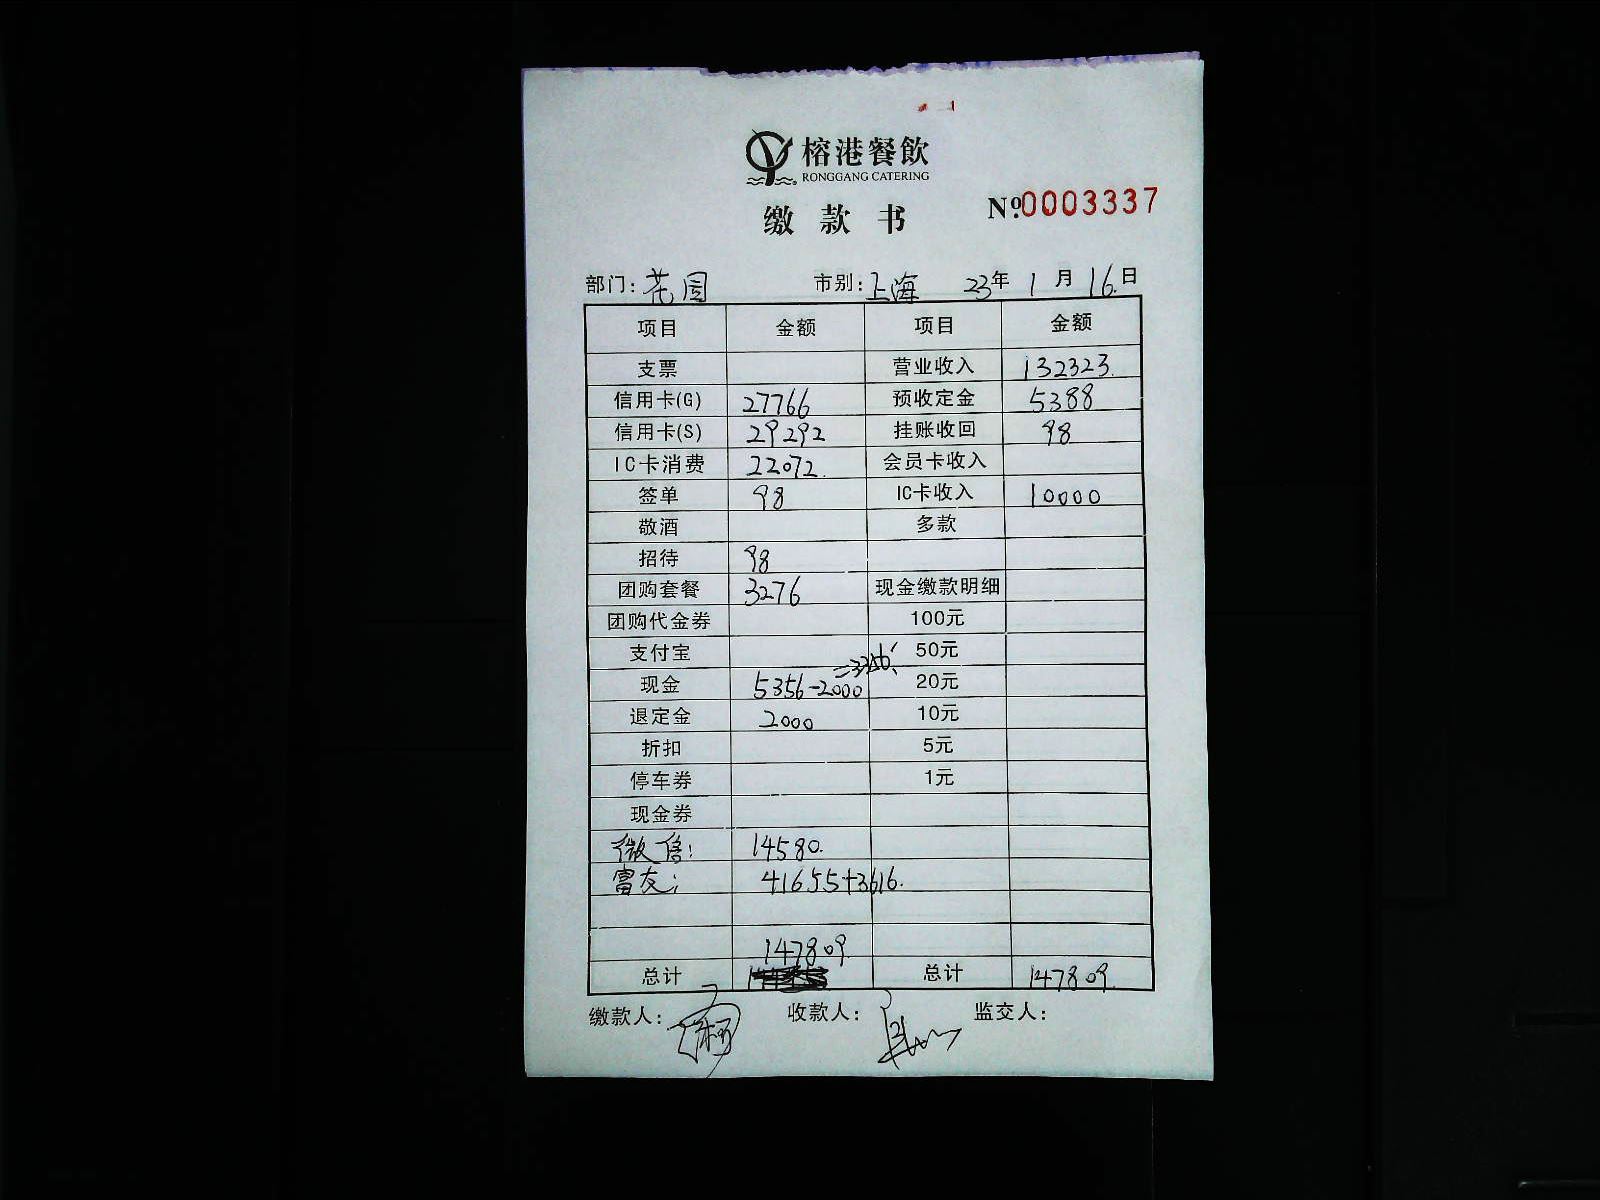 榕港餐飲
RONGGANG CATERING
缴款书
№0003337
部门: 花园 市别: 上海 23年 1月 16.日
项目 金额 项目 金额
支票 营业收入 132323.
信用卡(G) 27766 预收定金 5388
信用卡(S) 29292 挂账收回 98
IC卡消费 22072. 会员卡收入
签单 98 IC卡收入 10000
敬酒 多款
招待 98
团购套餐 3276 现金缴款明细
团购代金券 100元
支付宝 50元
现金 5356-2000 20元
退定金 2000 10元
折扣 5元
停车券 1元
现金券
微信: 14580.
雷友: 41655+3616.
147809.
总计 总计 147809.
缴款人: 收款人: 监交人: